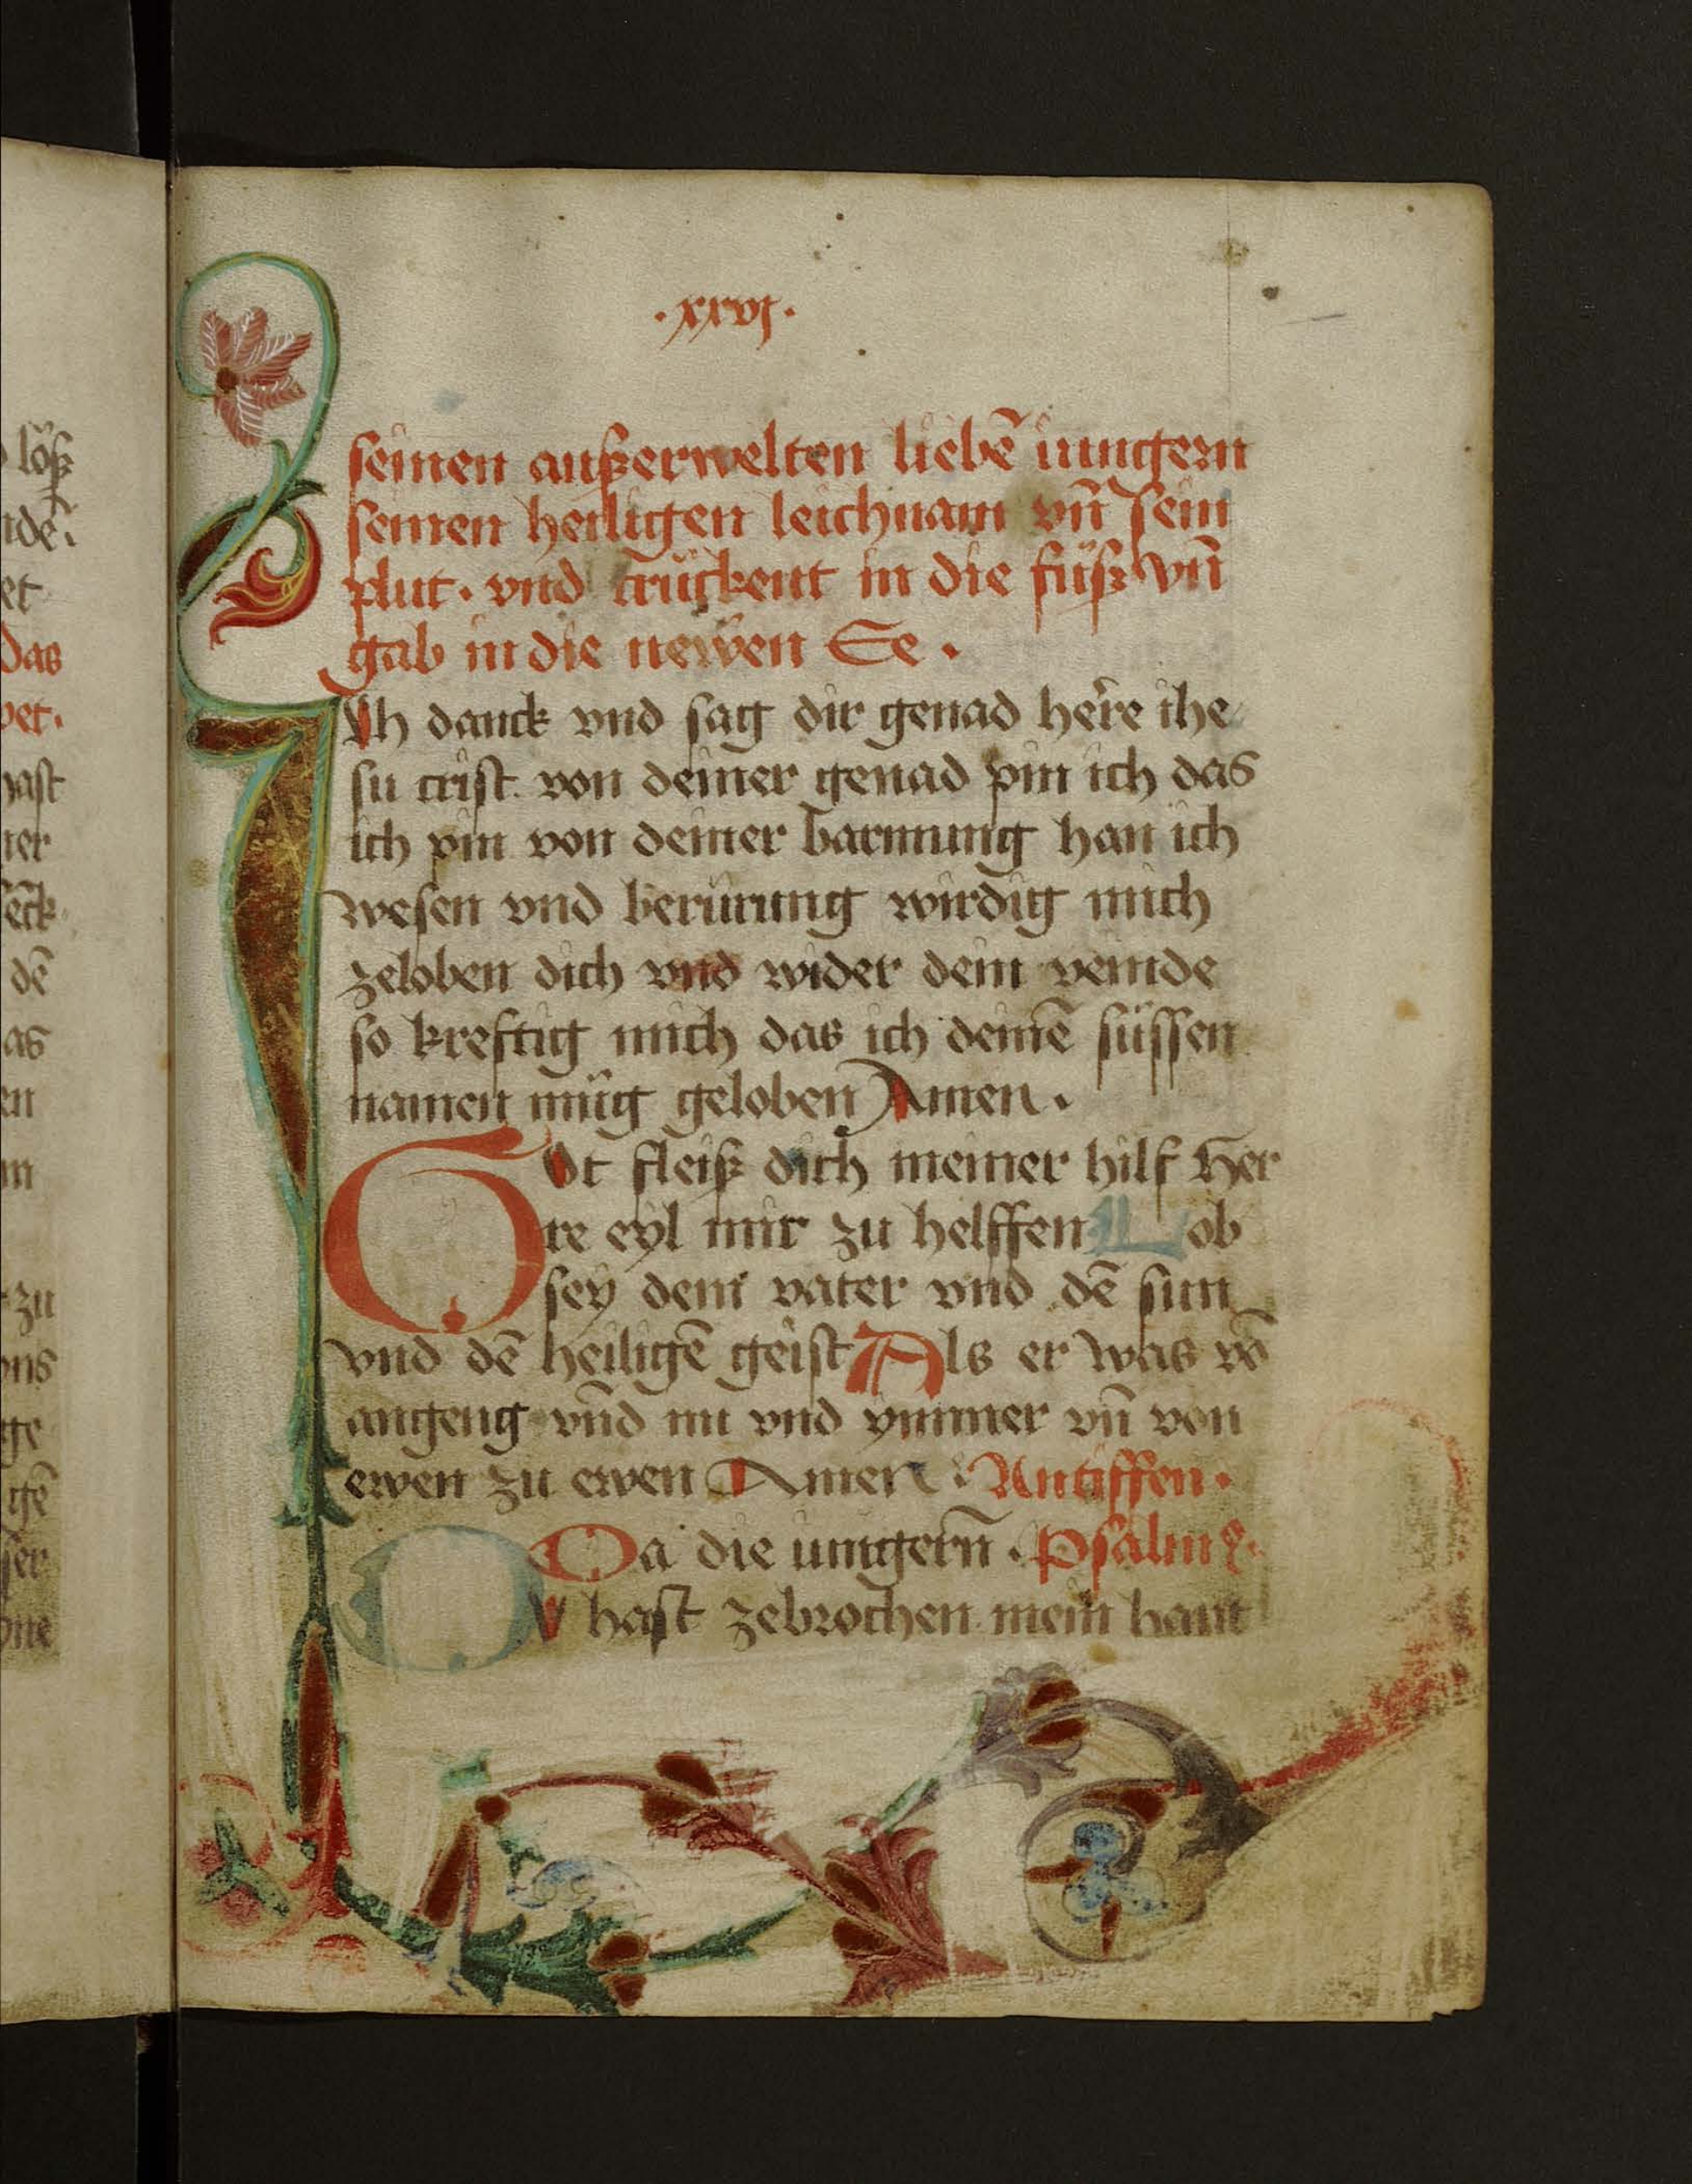 ·xxvj·
seinen außerwelten liebē iungern
seinen heiligen leichnam vn̄ sein
plut· vnd trückent in die füß vn̄
gab in die newen Ee·
Ich danck vnd sag dir genad herre ihe
su crist von deiner genad pin ich das
ich pin von deiner barmung han ich
wesen vnd berürung wirdig mich
zeloben dich vnd wider dein veinde
so kreftig mich das ich deinē süssen
namen müg geloben Amen·
Got fleiß dich meiner hilf Her
re eyl mir zu helffen Lob
sey dem vater vnd dē sun
vnd dē heiligē geist Als er was vō
angeng vnd nu vnd ymmer vn̄ von
ewen zu ewen Amen: Antiffen·
Da die iungern̄· Psalm
Dv hast zebrochen mein hant